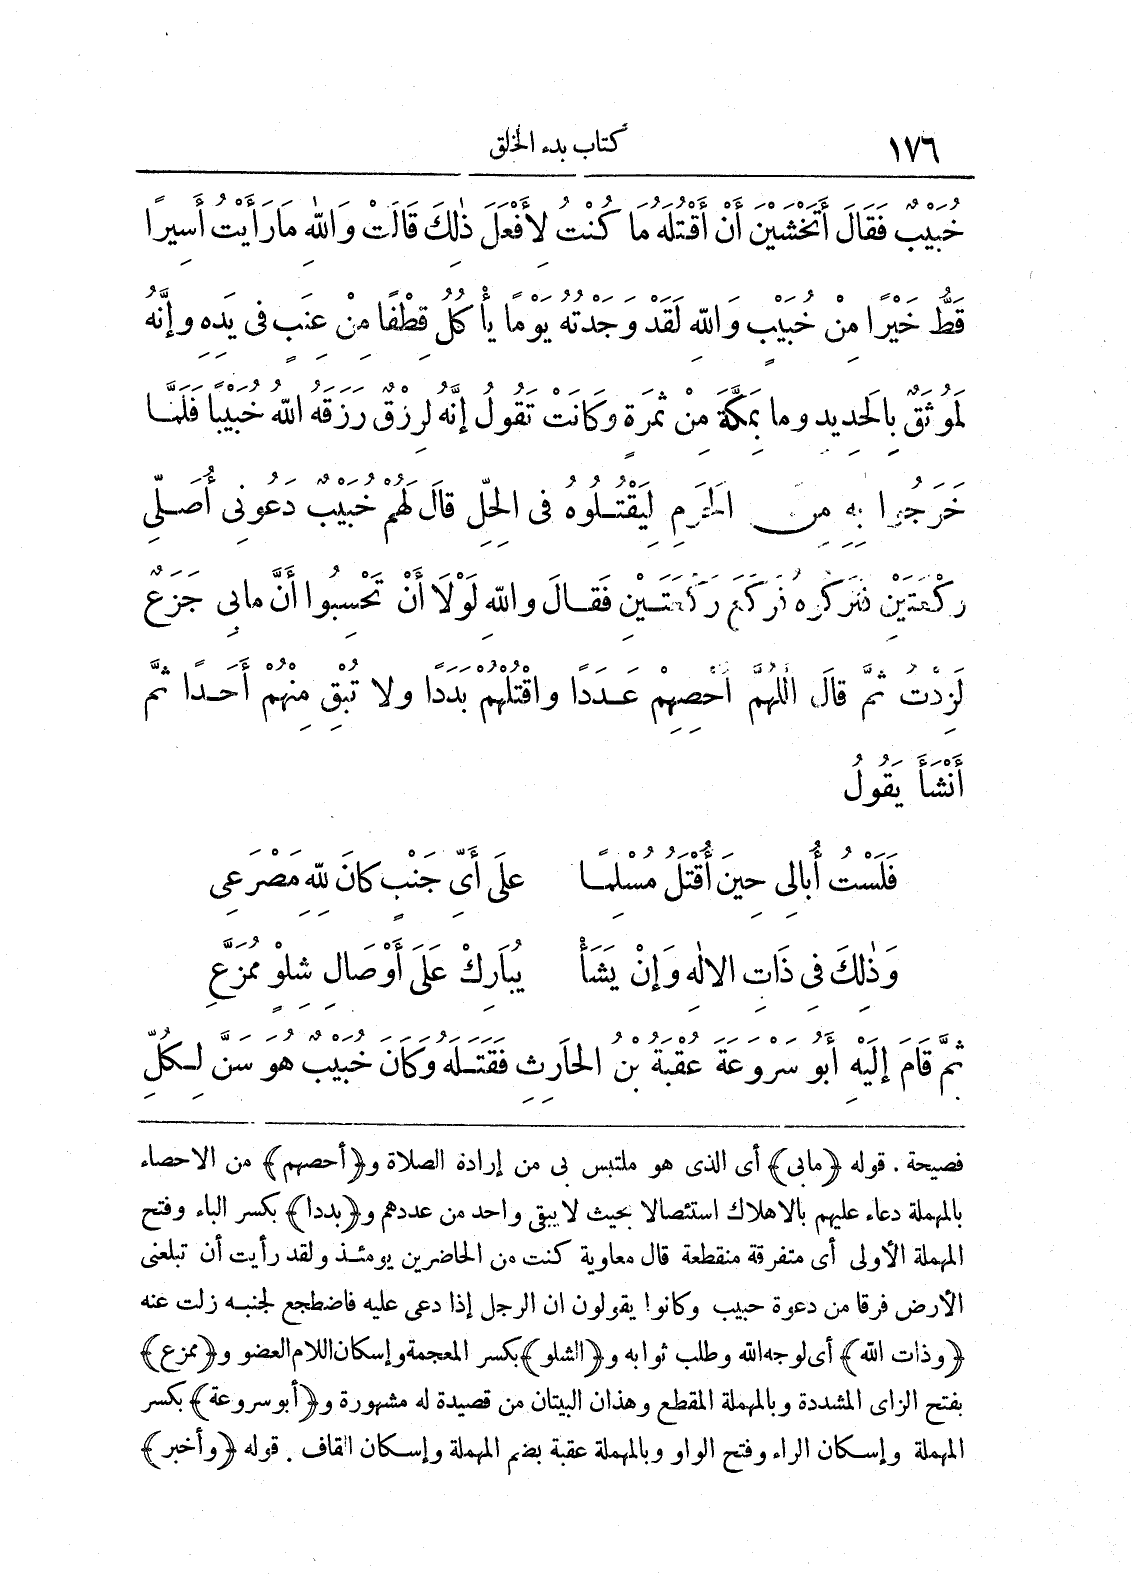 ١٧٦ كتاب بدء الخلق
خُبَيْبٌ فَقَالَ أَتَخْشَيْنَ أَنْ أَقْتُلَهُ مَا كُنْتُ لِأَفْعَلَ ذٰلِكَ قَالَتْ وَاللهِ مَا رَأَيْتُ أَسِيرًا
قَطُّ خَيْرًا مِنْ خُبَيْبٍ وَاللهِ لَقَدْ وَجَدْتُهُ يَوْمًا يَأْكُلُ قِطْفًا مِنْ عِنَبٍ فِى يَدِهِ وَإِنَّهُ
لَمُوثَقٌ بِالْحَدِيدِ وما بِمَكَّةَ مِنْ ثَمَرَةٍ وَكَانَتْ تَقُولُ إِنَّهُ لَرِزْقٌ رَزَقَهُ اللهُ خُبَيْبًا فَلَمَّا
خَرَجُوا بِهِ مِنَ الْحَرَمِ لِيَقْتُلُوهُ فى الْحِلِّ قَالَ لَهُمْ خُبَيْبٌ دَعُونِى أُصَلِّى
رَكْعَتَيْنِ فَتَرَكُوهُ فَرَكَعَ رَكْعَتَيْنِ فَقَالَ واللهِ لَوْلَا أَنْ تَحْسِبُوا أَنَّ مابِى جَزَعٌ
لَزِدْتُ ثُمَّ قَالَ اللّٰهُمَّ أَحْصِهِمْ عَدَدًا واقْتُلْهُمْ بَدَدًا ولا تُبْقِ مِنْهُمْ أَحَدًا ثُمَّ
أَنْشَأَ يَقُولُ
فَلَسْتُ أُبَالِى حِينَ أُقْتَلُ مُسْلِمًا عَلَى أَىِّ جَنْبٍ كَانَ لِلّٰهِ مَصْرَعِى
وَذٰلِكَ فِى ذَاتِ الالٰهِ وَإِنْ يَشَأْ يُبَارِكْ عَلَى أَوْصَالِ شِلْوٍ مُمَزَّعِ
ثُمَّ قَامَ إِلَيْهِ أَبُو سِرْوَعَةَ عُقْبَةُ بْنُ الْحَارِثِ فَقَتَلَهُ وَكَانَ خُبَيْبٌ هُوَ سَنَّ لِكُلِّ
فصيحة . قوله ﴿مابى﴾ أى الذى هو ملتبس بى من إرادة الصلاة و﴿أحصهم﴾ من الاحصاء
بالمهملة دعاء عليهم بالاهلاك استئصالا بحيث لا يبقى واحد من عددهم و﴿بددا﴾ بكسر الباء وفتح
المهملة الأولى أى متفرقة منقطعة قال معاوية كنت من الحاضرين يومئذ ولقد رأيت أن تبلعنى
الأرض فرقا من دعوة حبيب وكانوا يقولون ان الرجل إذا دعى عليه فاضطجع لجنبه زلت عنه
﴿وذات الله﴾ أى لوجه الله وطلب ثوابه و﴿الشلو﴾ بكسر المعجمة وإسكان اللام العضو و﴿ممزع﴾
بفتح الزاى المشددة وبالمهملة المقطع وهذان البيتان من قصيدة له مشهورة و﴿أبو سروعة﴾ بكسر
المهملة وإسكان الراء وفتح الواو وبالمهملة عقبة بضم المهملة وإسكان القاف . قوله ﴿وأخبر﴾